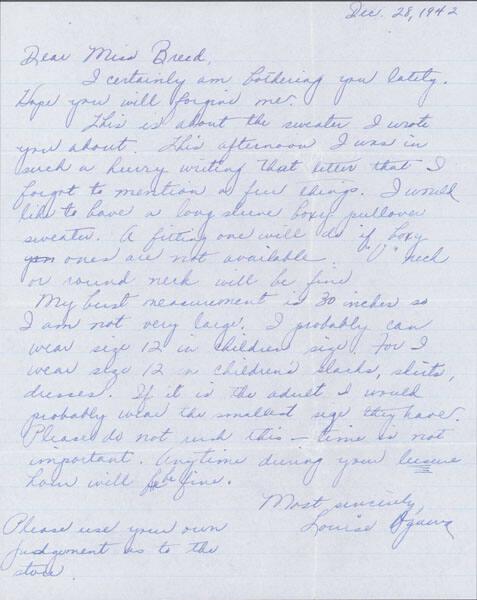 Dec. 28, 1942
Dear Miss Breed,
I certainly am bothering you lately.
Hope you will forgive me.
This is about the sweater I wrote
you about. This afternoon I was in
such a hurry writing that letter that I
forgot to mention a few things. I would
like to have a long sleeve boxy pullover
sweater. A fitting one will do if boxy
ones are not available. "V" neck
or round neck will be fine
My bust measurement is 30 inches so
I am not very large. I probably can
wear size 12 in children size. For I
wear size 12 in children's slacks, skirts,
dresses. If it is the adult I would
probably wear the smallest size they have.
Please do not rush this — time is not
important. Anytime during your leisure
hour will be fine.
Most sincerely,
Louise Ogawa
Please use your own
judgement as to the
store.